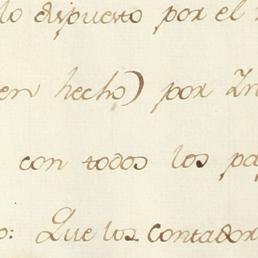 lo dispuesto por el
en hecho) por In
con todos los pa
o: Que los Contador